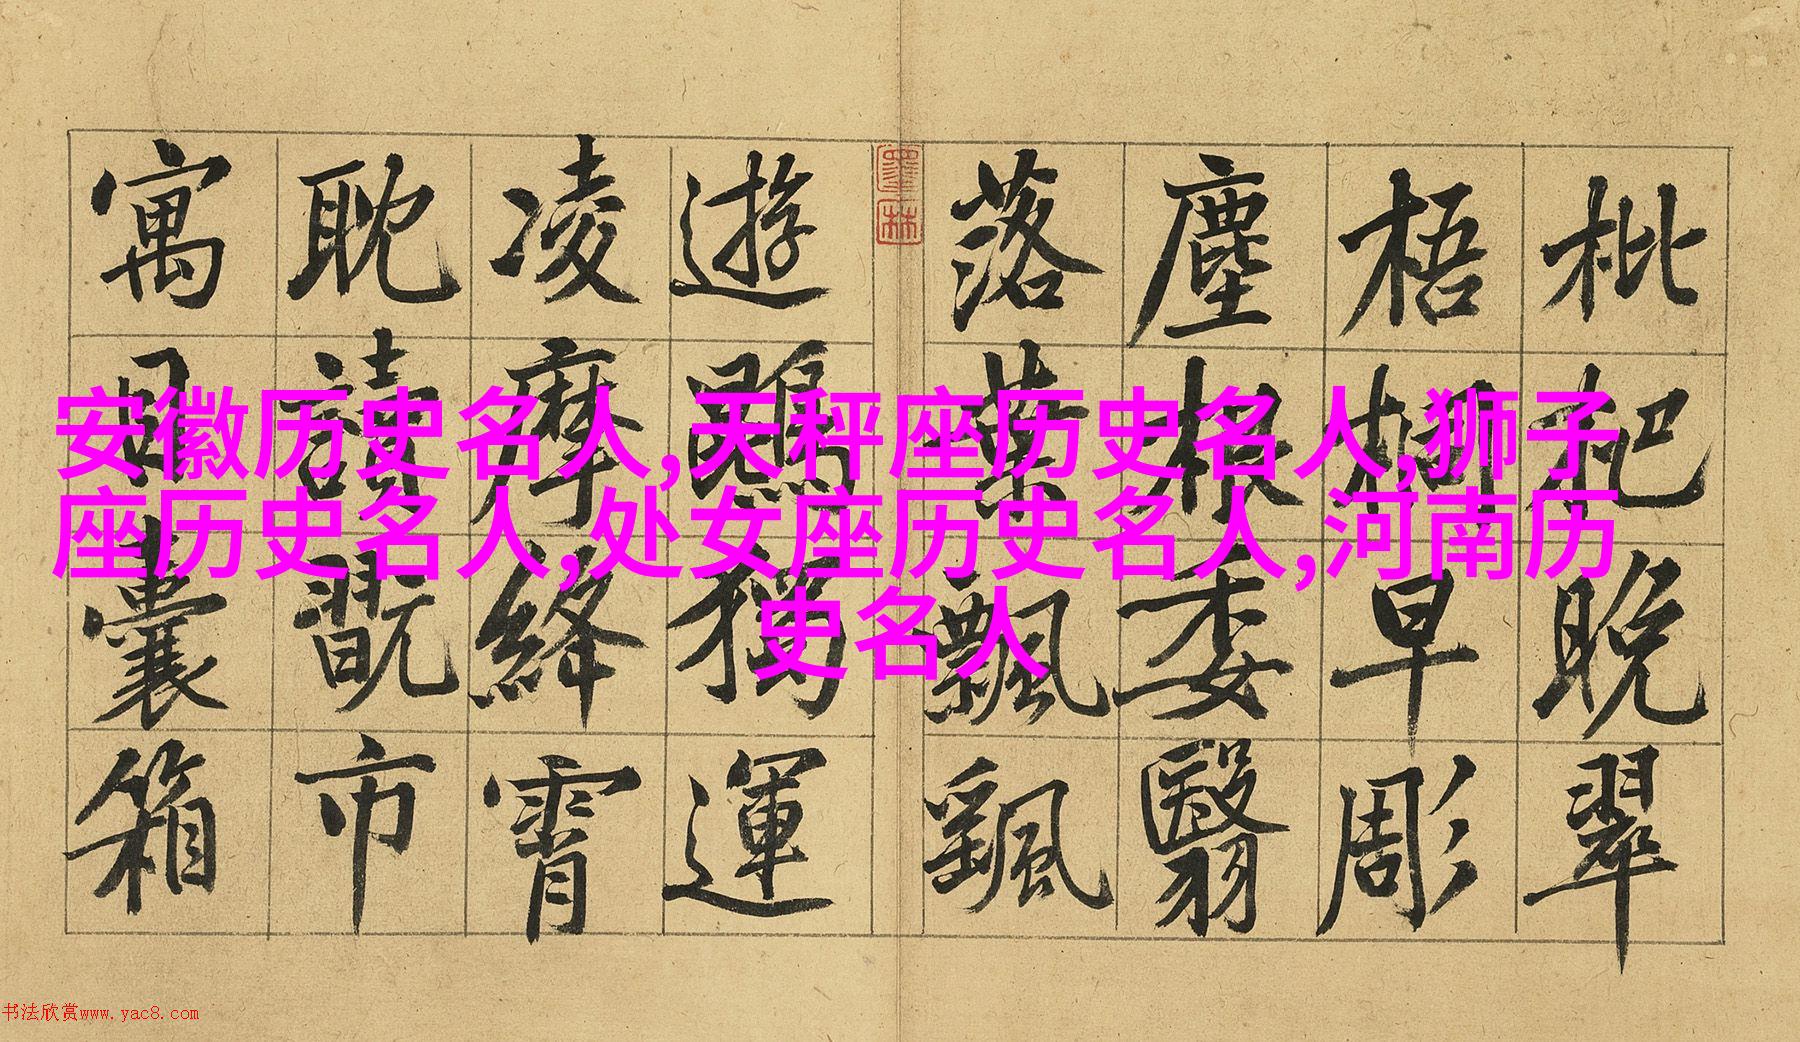 安徽历史名人,天秤座历史名人,狮子
座历史名人,处女座历史名人,河南历
史名人
枇杷晚翠
梧桐早彫
塵根委翳
落葉飄颻
遊鵾獨運
凌摩絳霄
耽讀翫市
寓目囊箱
墨林
书法欣赏www.yac8.com